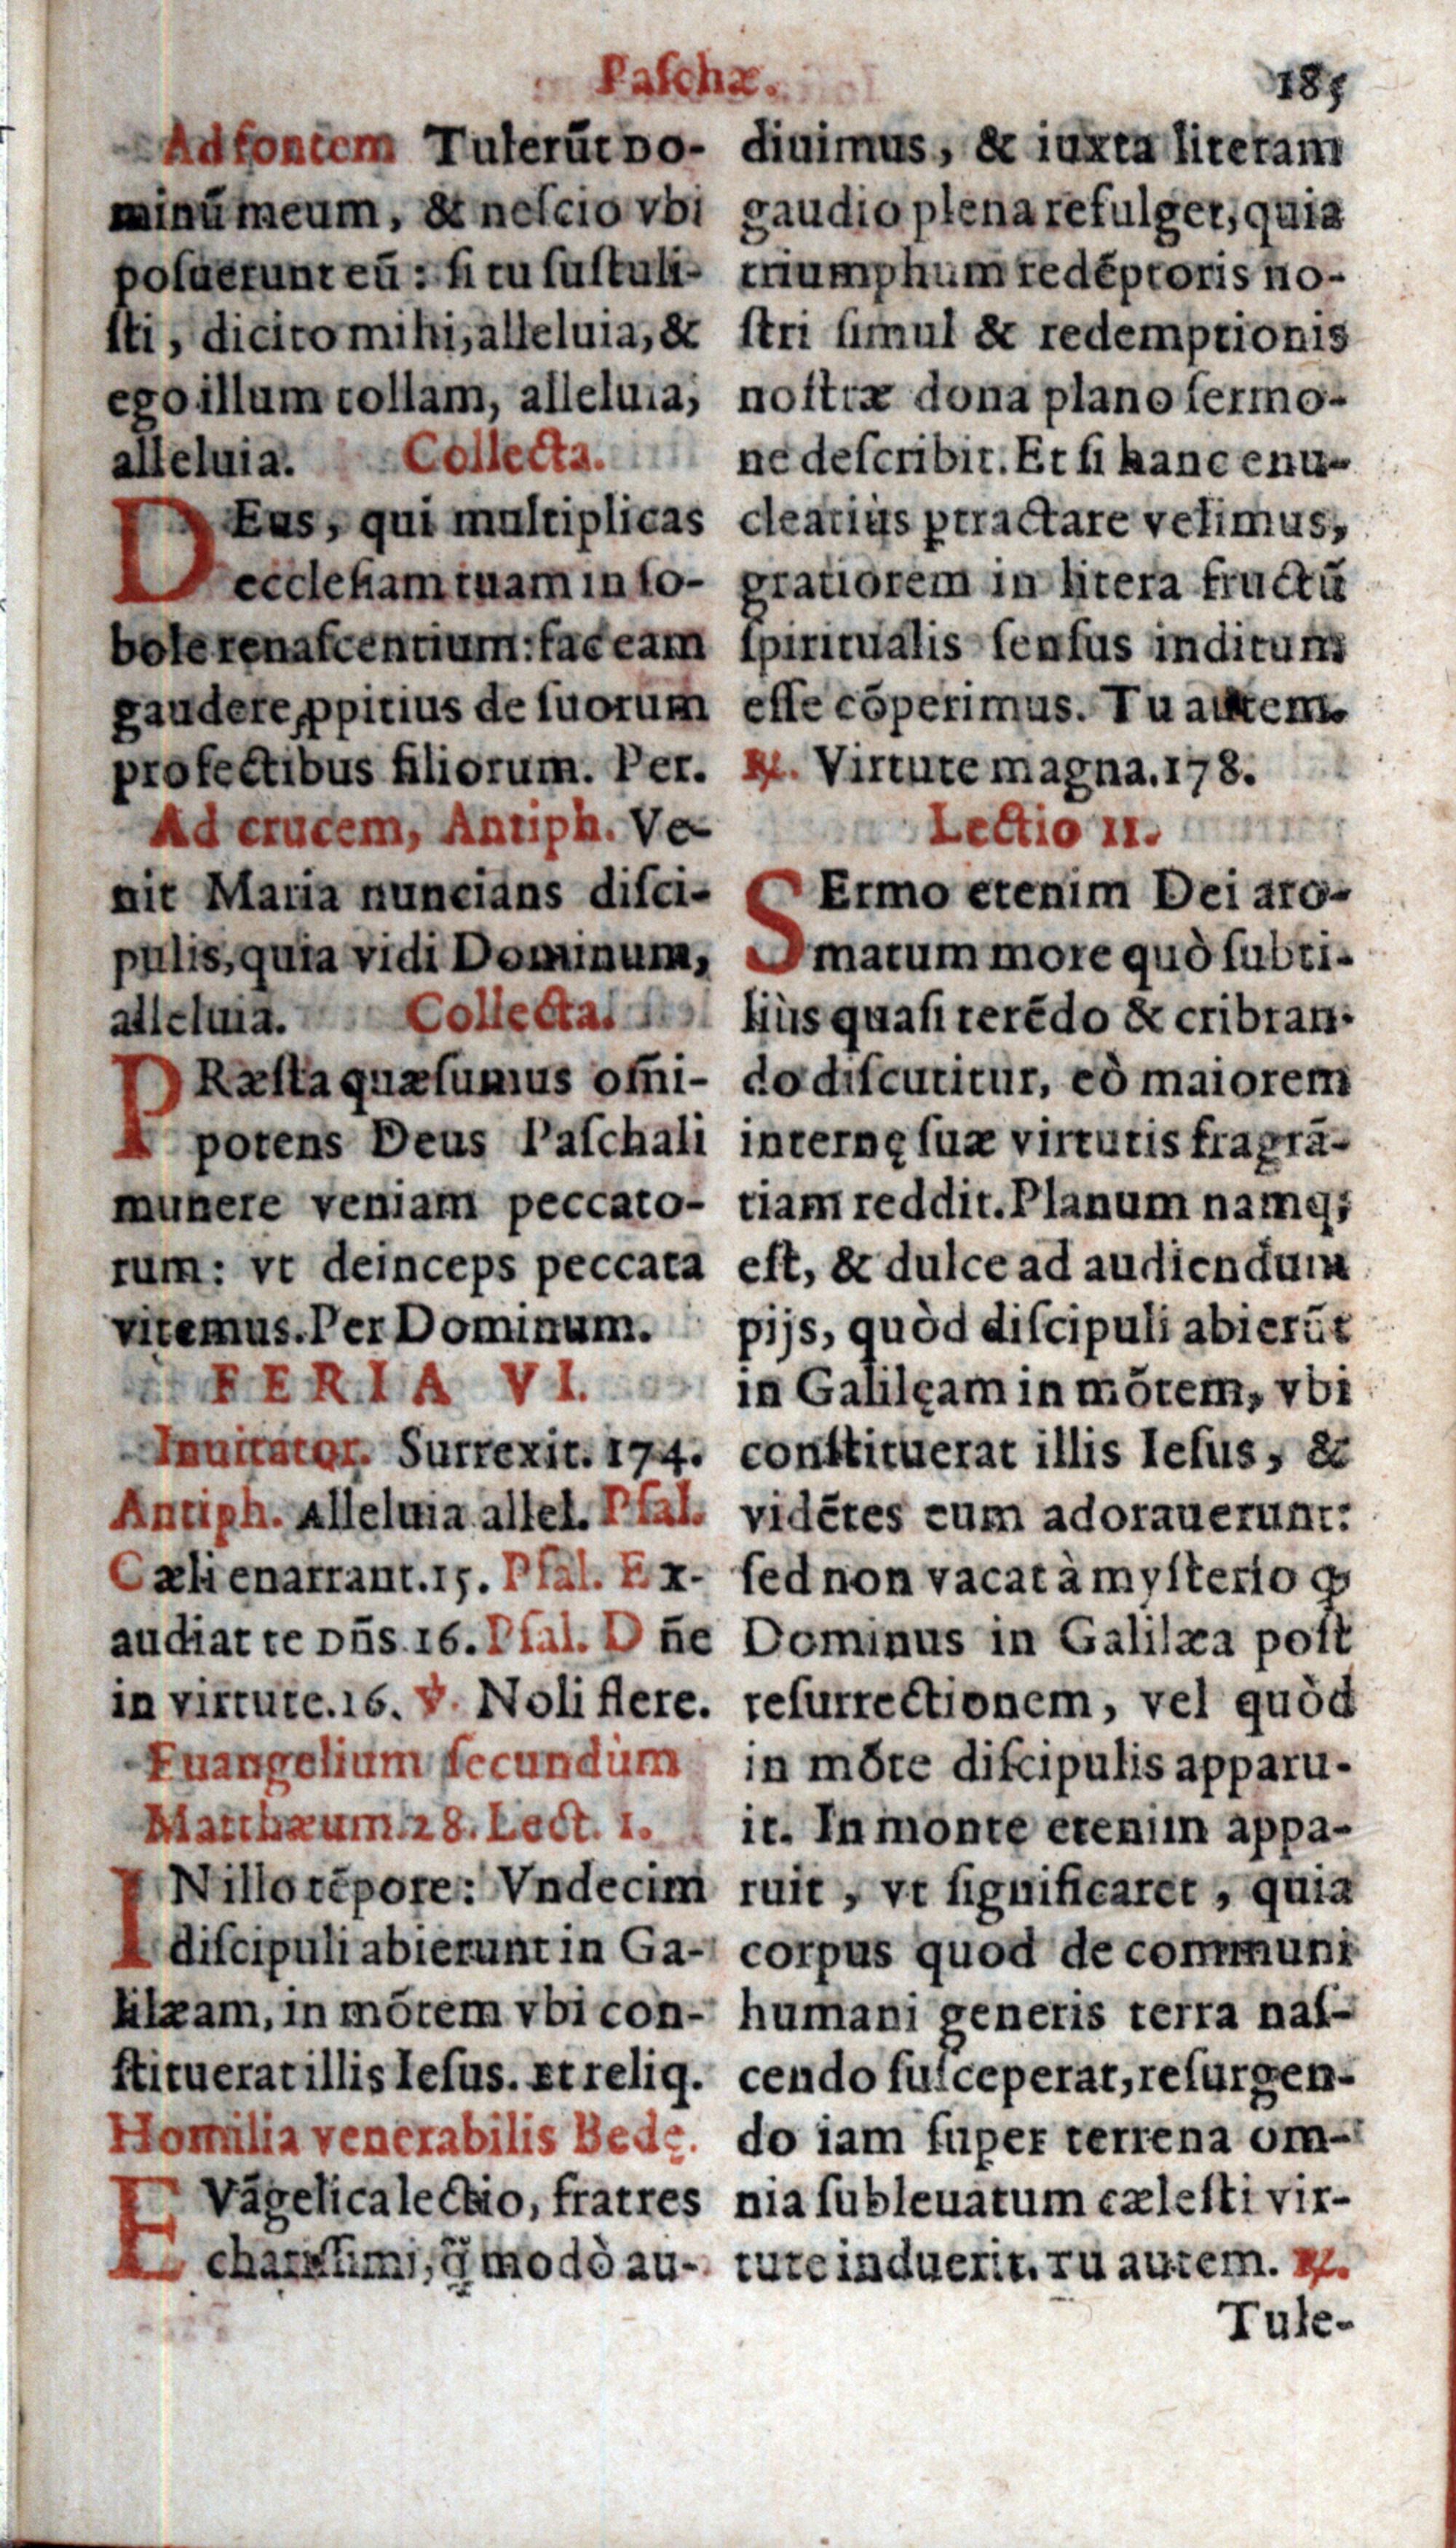 Paſchæ.
185
Ad fontem Tulerūt Do-
minū meum, & neſcio vbi
poſuerunt eū : ſi tu ſuſtuli-
ſti, dicito mihi, alleluia, &
ego illum tollam, alleluia,
alleluia. Collecta.
DEus, qui multiplicas
eccleſiam tuam in ſo-
bole renaſcentium: fac eam
gaudere ꝓpitius de ſuorum
profectibus filiorum. Per.
Ad crucem, Antiph. Ve-
nit Maria nuncians diſci-
pulis, quia vidi Dominum,
alleluia. Collecta.
PRæſta quæſumus om̄i-
potens Deus Paſchali
munere veniam peccato-
rum: vt deinceps peccata
vitemus. Per Dominum.
FERIA VI.
Inuitator. Surrexit. 174.
Antiph. Alleluia allel. Pſal.
Cæli enarrant. 15. Pſal. Ex-
audiat te Dn̄s 16. Pſal. Dn̄e
in virtute. 16. ℣. Noli flere.
Euangelium ſecundùm
Matthæum. 28. Lect. 1.
IN illo tēpore: Vndecim
diſcipuli abierunt in Ga-
lilæam, in mōtem vbi con-
ſtituerat illis Ieſus. Et reliq.
Homilia venerabilis Bedę.
EVāgelica lectio, fratres
chariſſimi, q̄ modò au-
diuimus, & iuxta literam
gaudio plena refulget, quia
triumphum redēptoris no-
ſtri ſimul & redemptionis
noſtræ dona plano ſermo-
ne deſcribit. Et ſi hanc enu-
cleatiùs ꝑtractare velimus,
gratiorem in litera fructū
ſpiritualis ſenſus inditum
eſſe cōperimus. Tu autem.
℟. Virtute magna. 178.
Lectio II.
SErmo etenim Dei aro-
matum more quò ſubti-
liùs quaſi terēdo & cribran-
do diſcutitur, eò maiorem
internę ſuæ virtutis fragrā-
tiam reddit. Planum namq;
eſt, & dulce ad audiendum
pijs, quòd diſcipuli abierūt
in Galilęam in mōtem, vbi
conſtituerat illis Ieſus, &
vidētes eum adorauerunt:
ſed non vacat à myſterio ꝙ
Dominus in Galilæa poſt
reſurrectionem, vel quòd
in mōte diſcipulis apparu-
it. In monte etenim appa-
ruit, vt ſignificaret, quia
corpus quod de communi
humani generis terra naſ-
cendo ſuſceperat, reſurgen-
do iam ſuper terrena om-
nia ſubleuatum cæleſti vir-
tute induerit. Tu autem. ℟.
Tule-